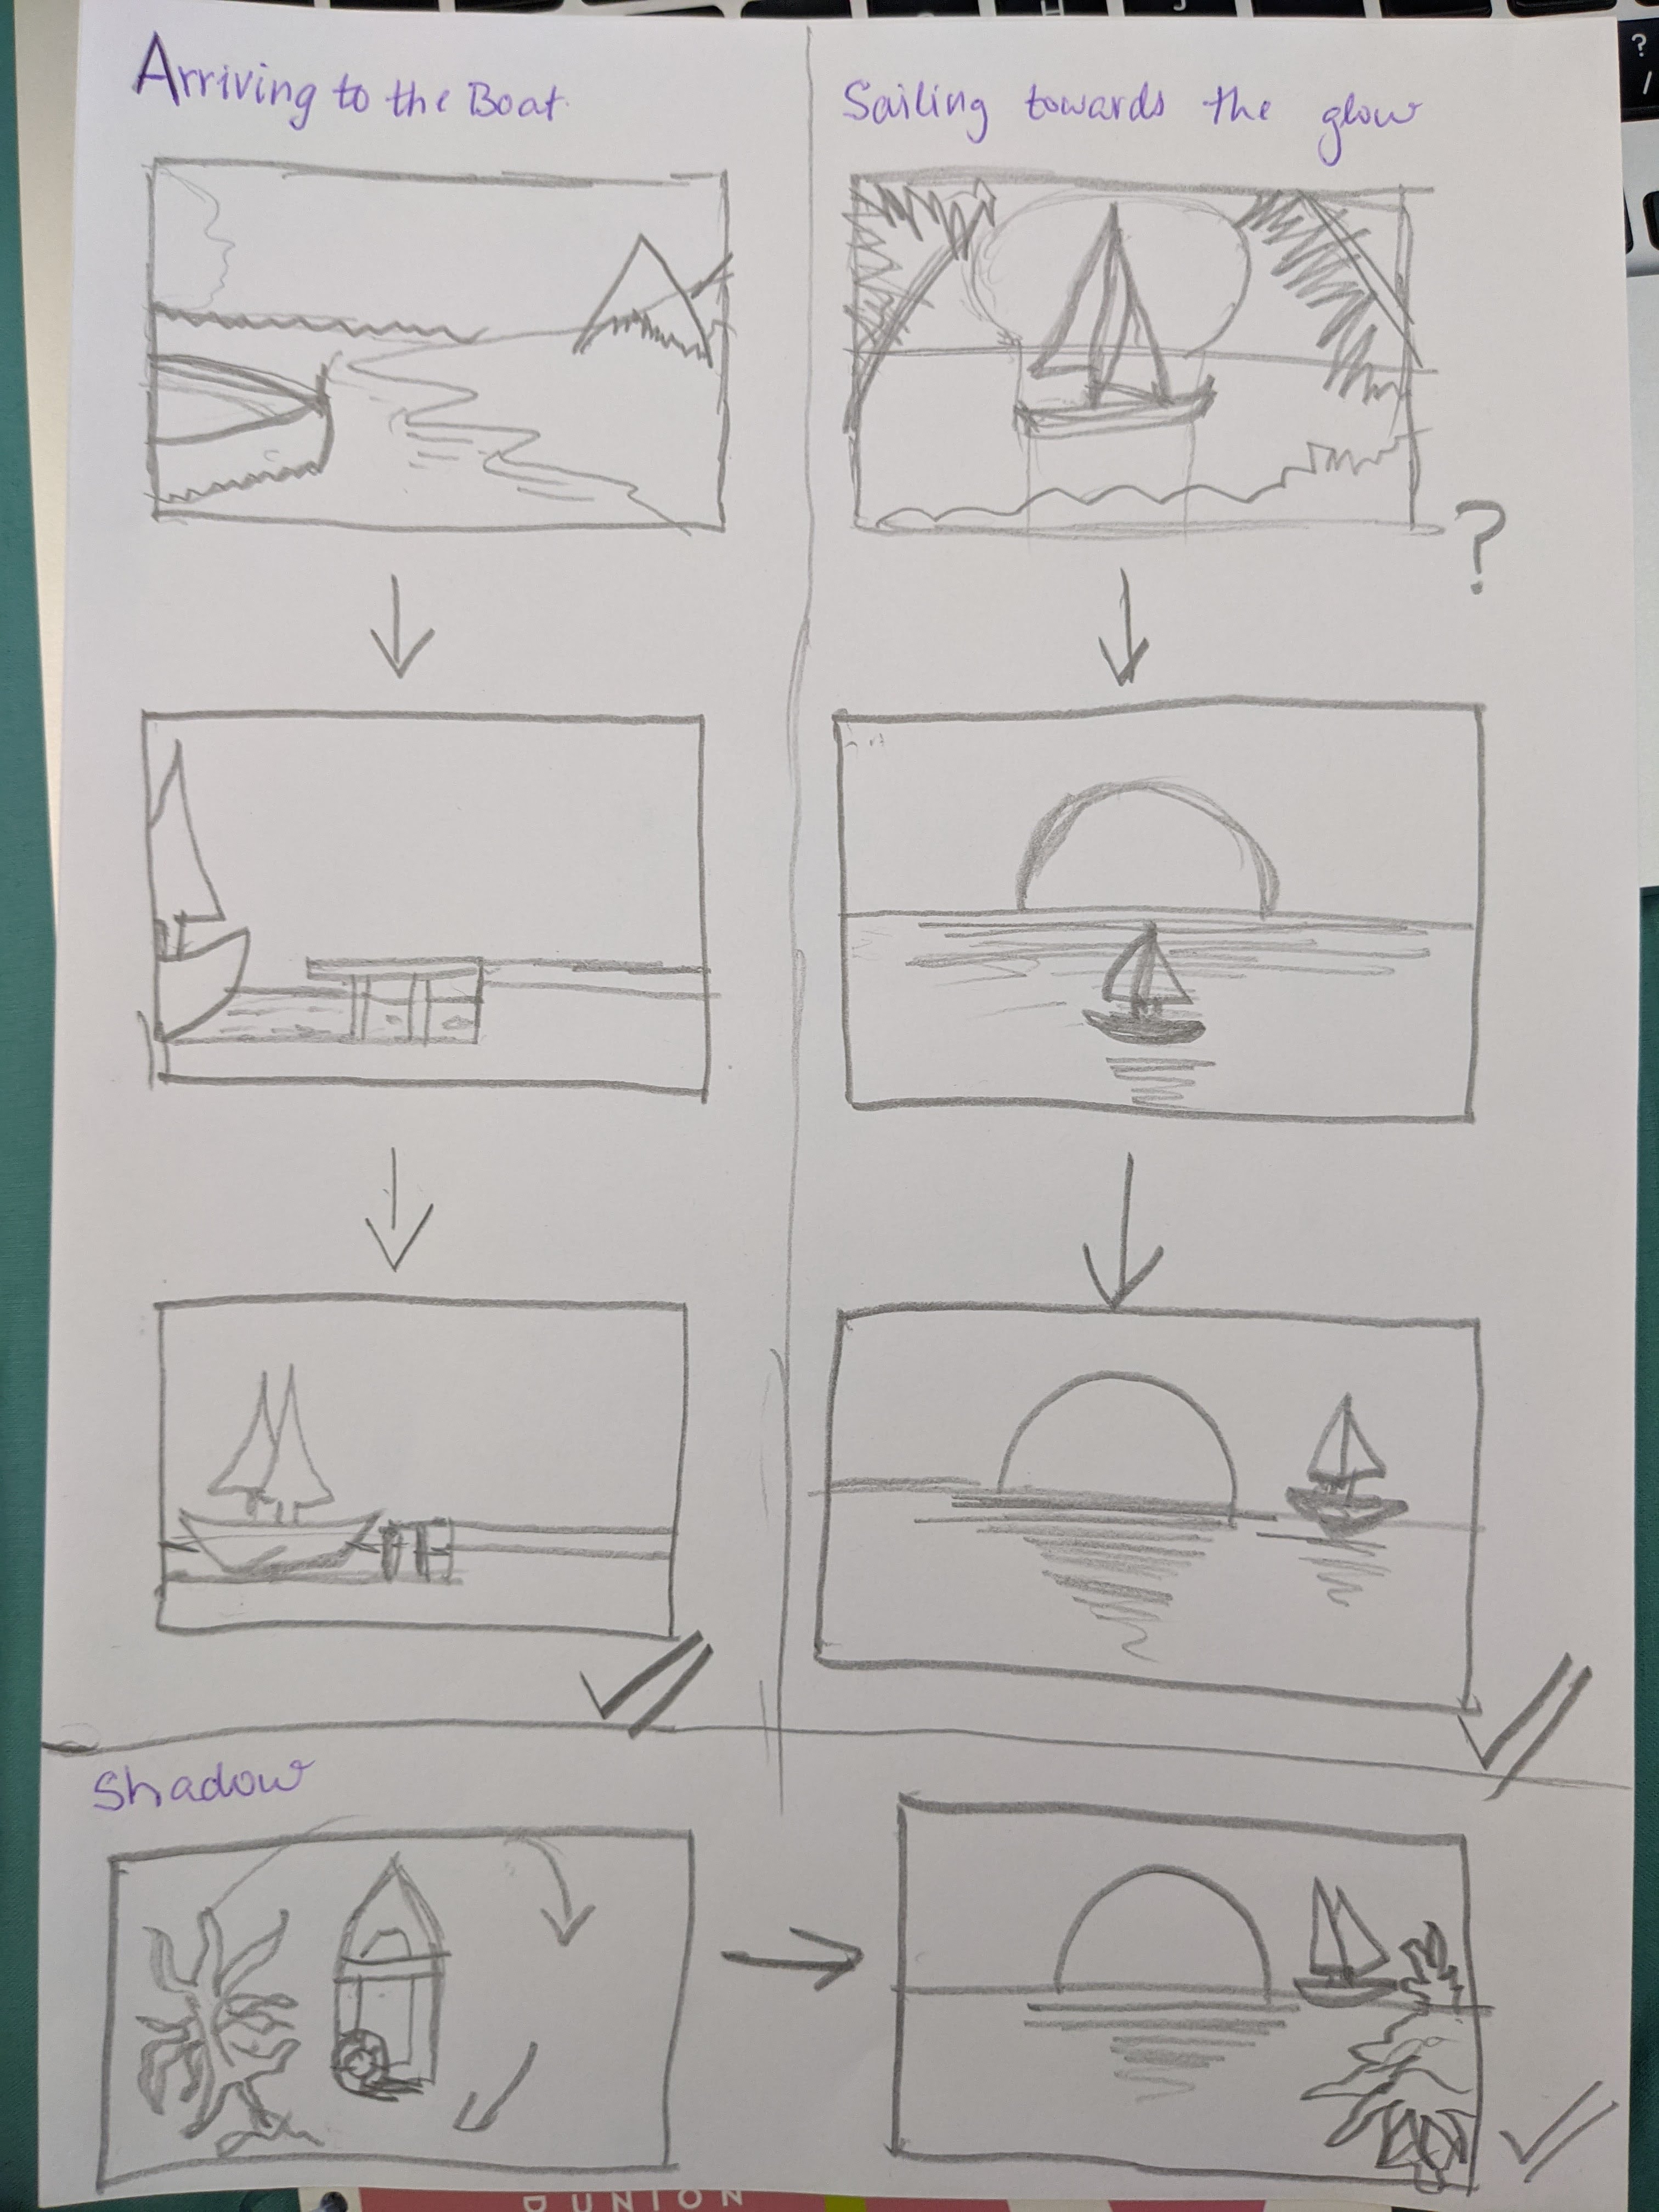 Arriving to the Boat.
Sailing towards the glow
?
Shadow
UNION
?
/